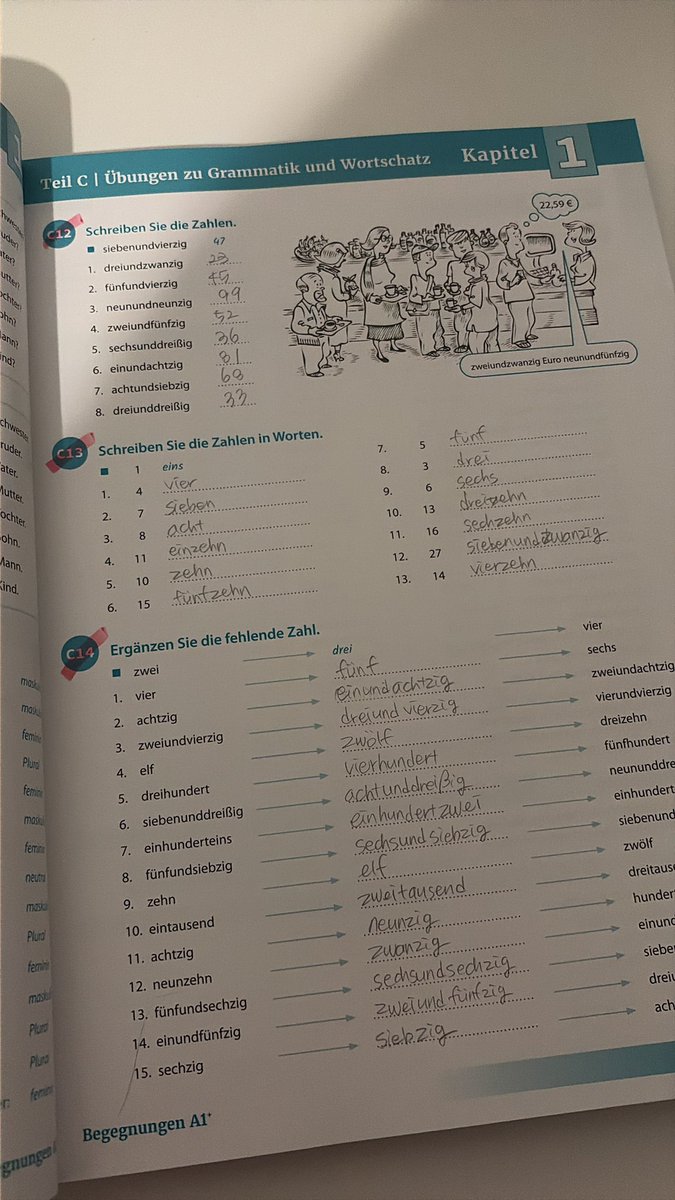 Teil C | Übungen zu Grammatik und Wortschatz Kapitel 1
C12 Schreiben Sie die Zahlen.
siebenundvierzig 47
1. dreiundzwanzig 23
2. fünfundvierzig 45
3. neunundneunzig 99
4. zweiundfünfzig 52
5. sechsunddreißig 36
6. einundachtzig 81
7. achtundsiebzig 68
8. dreiunddreißig 33
22,59 €
zweiundzwanzig Euro neunundfünfzig
C13 Schreiben Sie die Zahlen in Worten.
1 eins
1. 4 vier
2. 7 sieben
3. 8 acht
4. 11 einzehn
5. 10 zehn
6. 15 fünfzehn
7. 5 fünf
8. 3 drei
9. 6 sechs
10. 13 dreizehn
11. 16 sechzehn
12. 27 siebenundzwanzig
13. 14 vierzehn
C14 Ergänzen Sie die fehlende Zahl.
zwei drei vier
1. vier fünf sechs
2. achtzig einundachtzig zweiundachtzig
3. zweiundvierzig dreiundvierzig vierundvierzig
4. elf zwölf dreizehn
5. dreihundert vierhundert fünfhundert
6. siebenunddreißig achtunddreißig neununddre
7. einhunderteins einhundertzwei einhundert
8. fünfundsiebzig sechsundsiebzig siebenund
9. zehn elf zwölf
10. eintausend zweitausend dreitause
11. achtzig neunzig hunder
12. neunzehn zwanzig einun
13. fünfundsechzig sechsundsechzig siebe
14. einundfünfzig zweiundfünfzig dreiu
15. sechzig siebzig ach
Begegnungen A1+